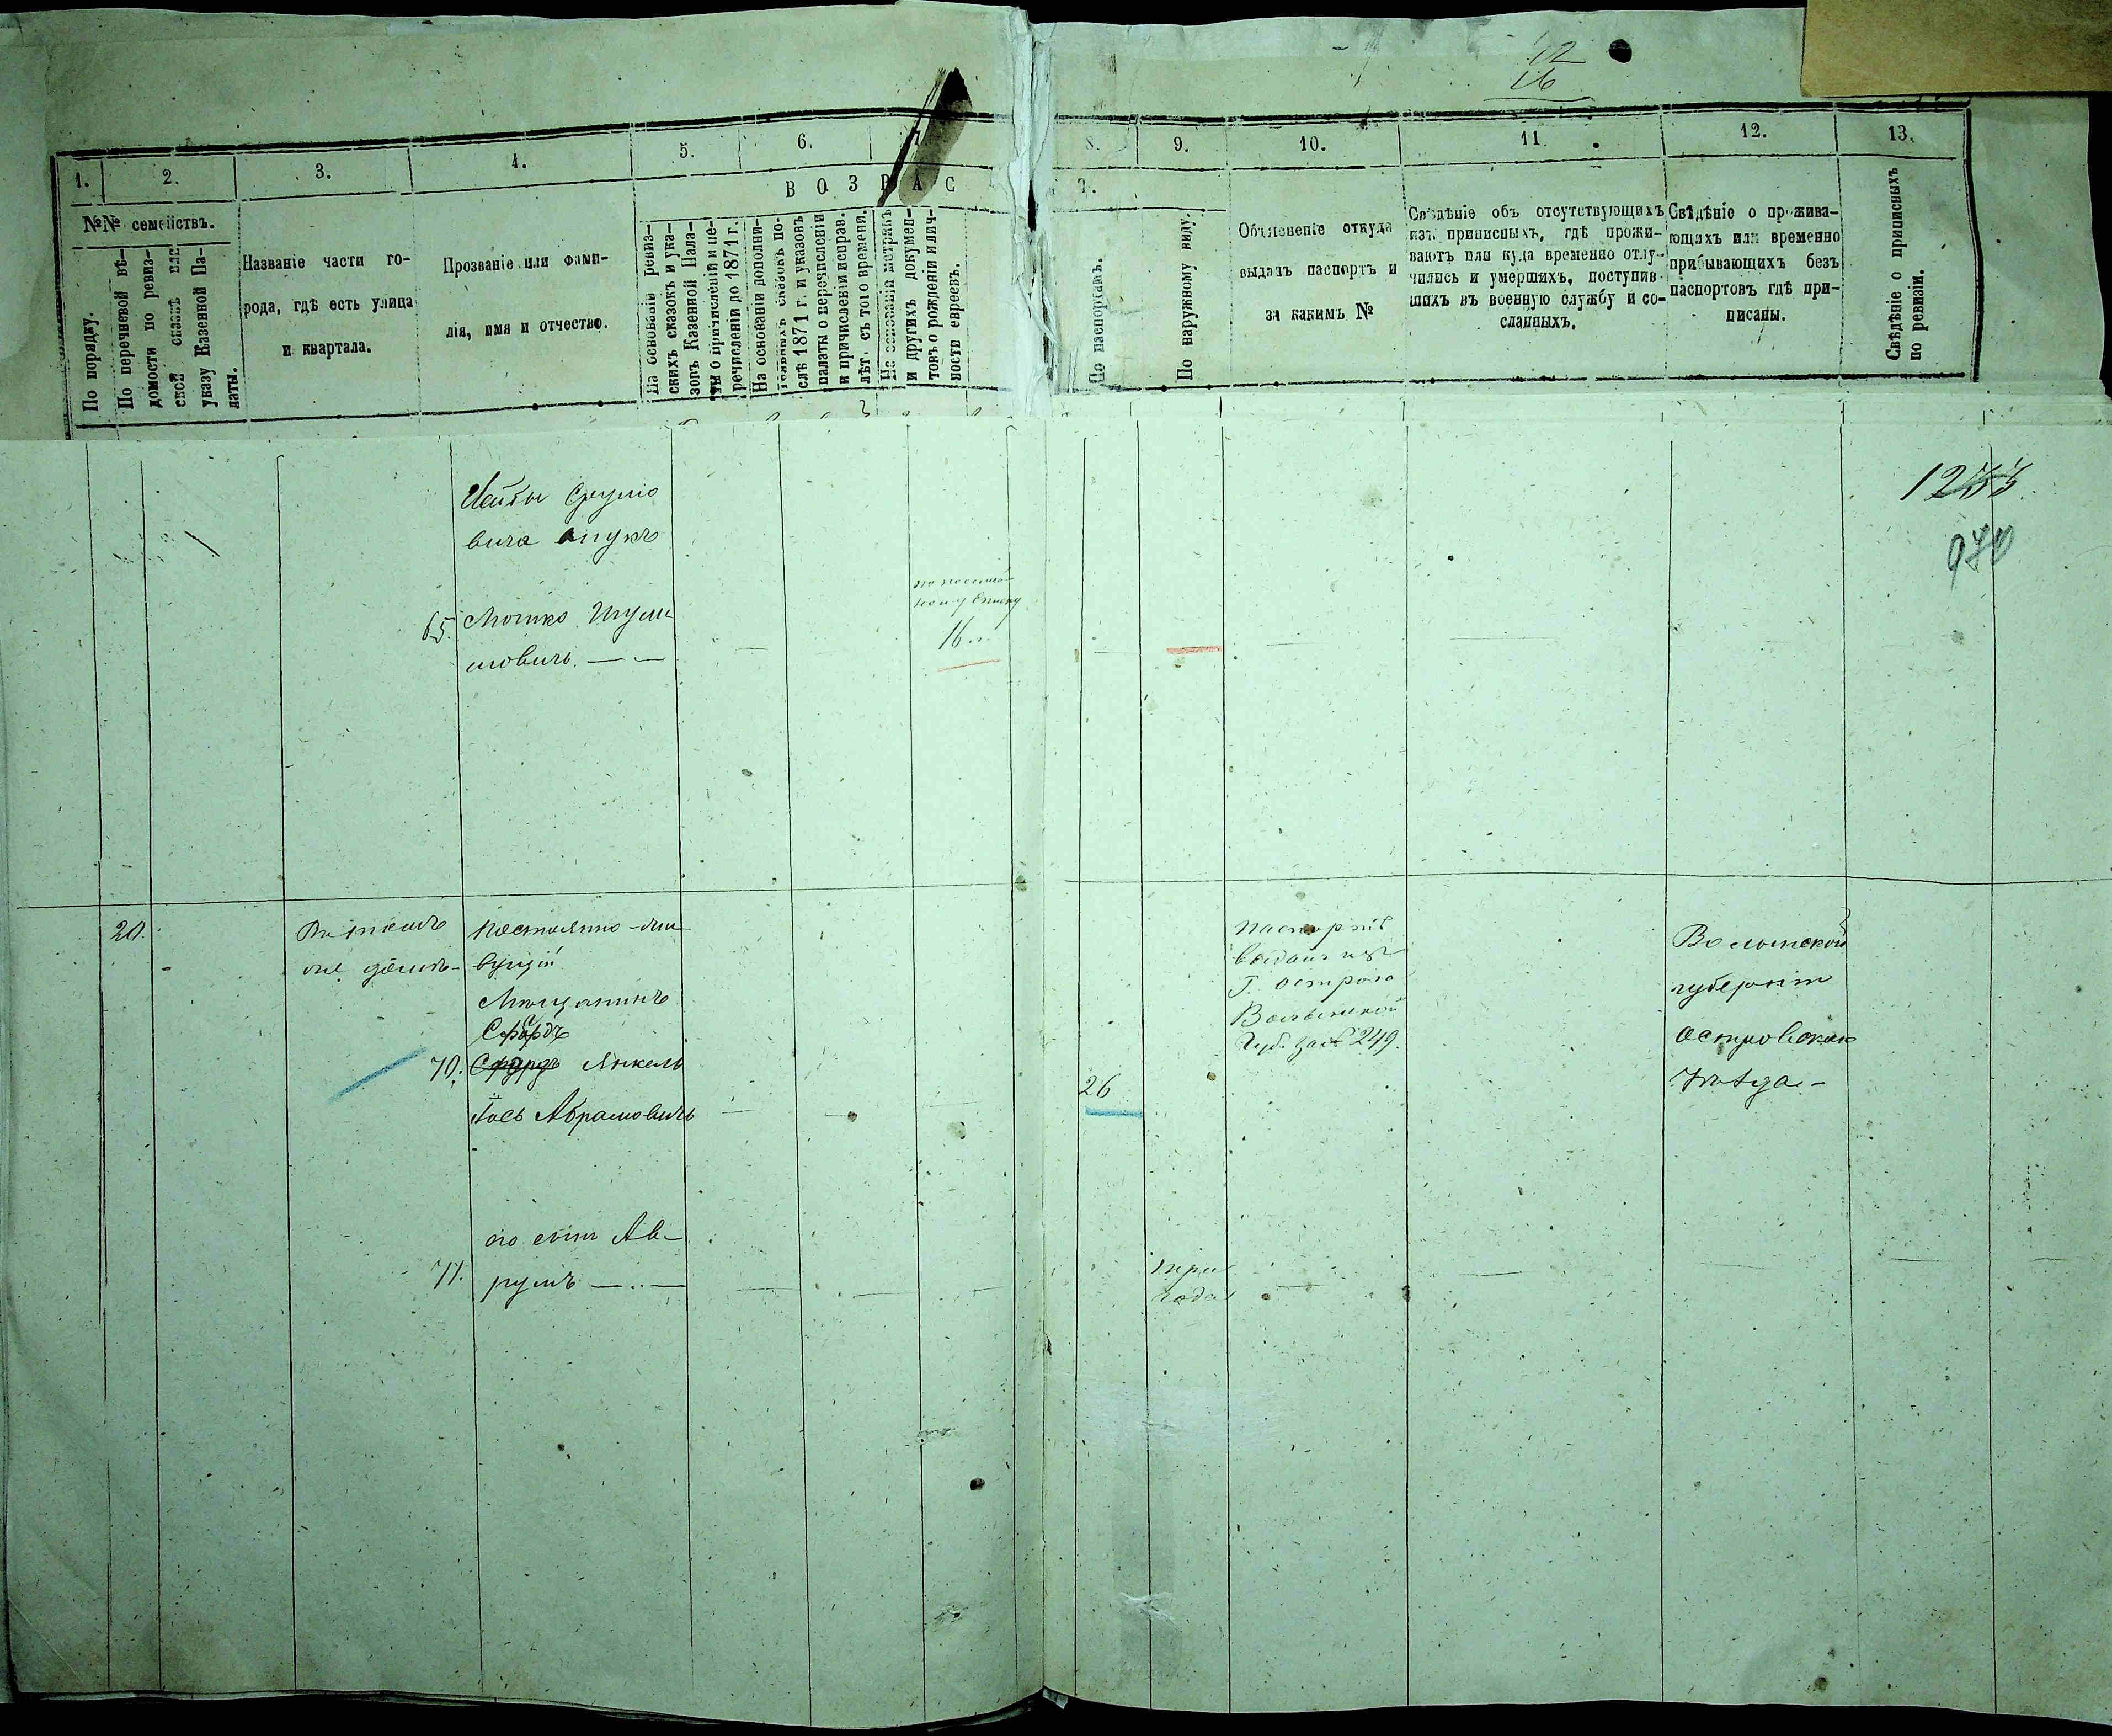 12
16
1.
2.
3.
4.
5.
6.
7
8.
9.
10.
11.
12.
13.
В О З Р А С
Т.
№№ семействъ.
По порядку.
По перечневой вѣ-
домости по ревиз-
ской сказкѣ или
указу Казенной Па-
латы.
Названіе части го-
рода, гдѣ есть улица
и квартала.
Прозваніе или фами-
лія, имя и отчество.
На основаніи ревиз-
скихъ сказокъ и ука-
зовъ Казенной Пала-
ты о причисленіи и пе-
речисленіи до 1871 г.
На основаніи дополни-
тельныхъ сказокъ по-
слѣ 1871 г. и указовъ
палаты о перечисленіи
и причисленіи исправ.
лѣт. съ того времени.
На основаніи метрикъ
и другихъ докумен-
товъ о рожденіи и лич-
ности евреевъ.
По паспортамъ.
По наружному виду.
Объясненіе откуда
выданъ паспортъ и
за какимъ №
Свѣдѣніе объ отсутствующихъ
изъ приписныхъ, гдѣ прожи-
ваютъ или куда временно отлу-
чились и умершихъ, поступив-
шихъ въ военную службу и со-
сланныхъ.
Свѣдѣніе о прожива-
ющихъ или временно
прибывающихъ безъ
паспортовъ гдѣ при-
писаны.
Свѣдѣніе о приписныхъ
по ревизіи.
Лейбы Сруліо
вича внукъ
65. Мошко Шулі
мовичъ. — —
16 л.
940
20.
домѣ-
Постоянно-жи
вущій
Мѣщанинъ
70. Янкель
Іось Абрамовичъ
26
Паспортъ
выданъ изъ
Г. Острога
Волынской
Губ. за № 249.
Волынской
губерніи
Островскаго
уѣзда -
71.
его сынъ Ав-
румъ —..—
три
года